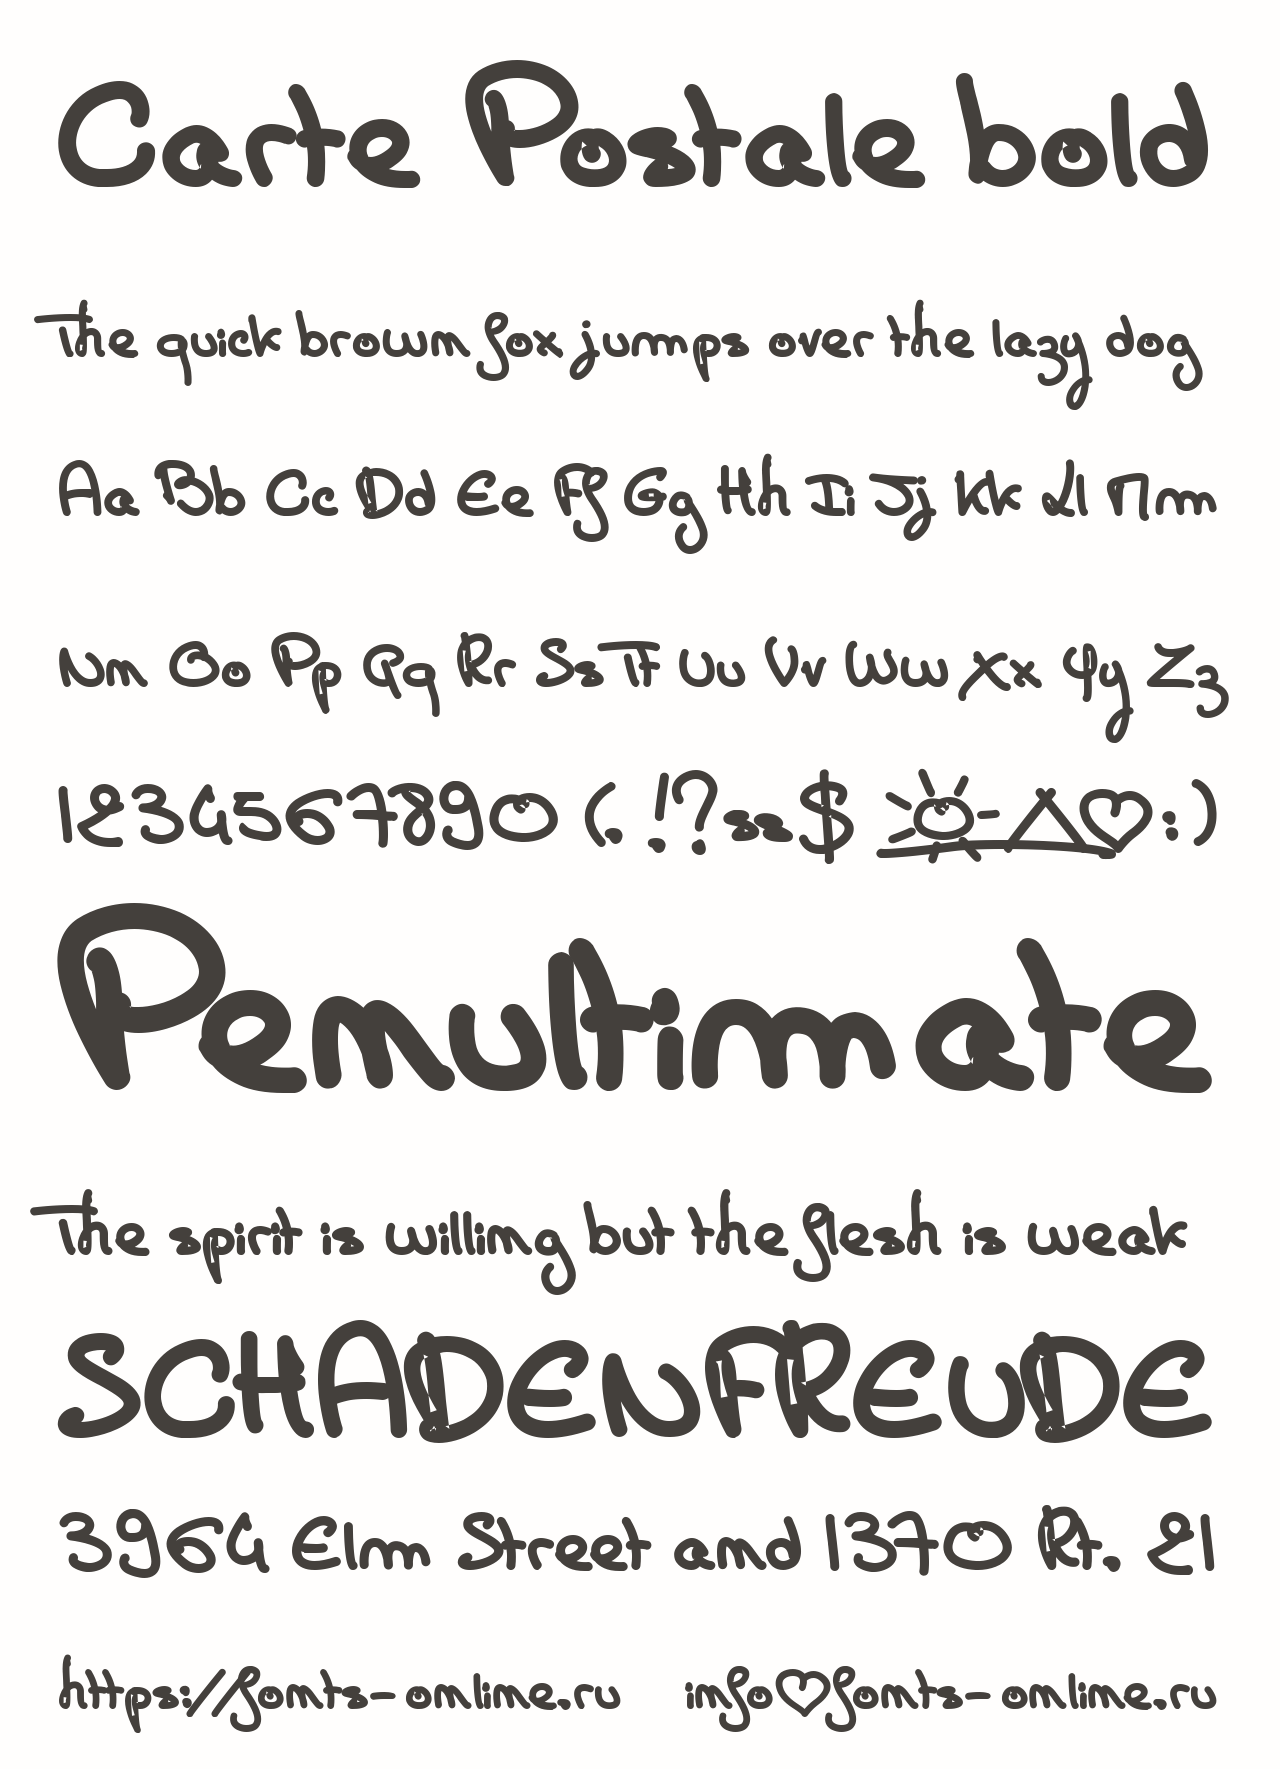 Carte Postale bold
The quick brown fox jumps over the lazy dog
Aa Bb Cc Dd Ee Ff Gg Hh Ii Jj Kk Ll Mm
Nn Oo Pp Qq Rr Ss Tt Uu Vv Ww Xx Yy Zz
1234567890 (.!?ss$ ☼_^♡:)
Penultimate
The spirit is willing but the flesh is weak
SCHADENFREUDE
3964 Elm Street and 1370 Rt. 21
https://fonts-online.ru info♡fonts-online.ru